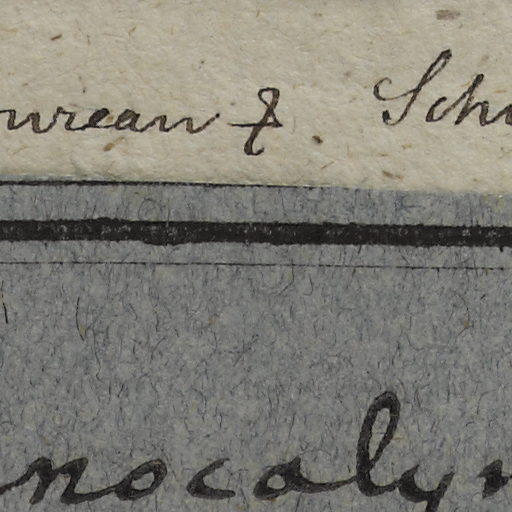 urean ☿. Sch
nocaly